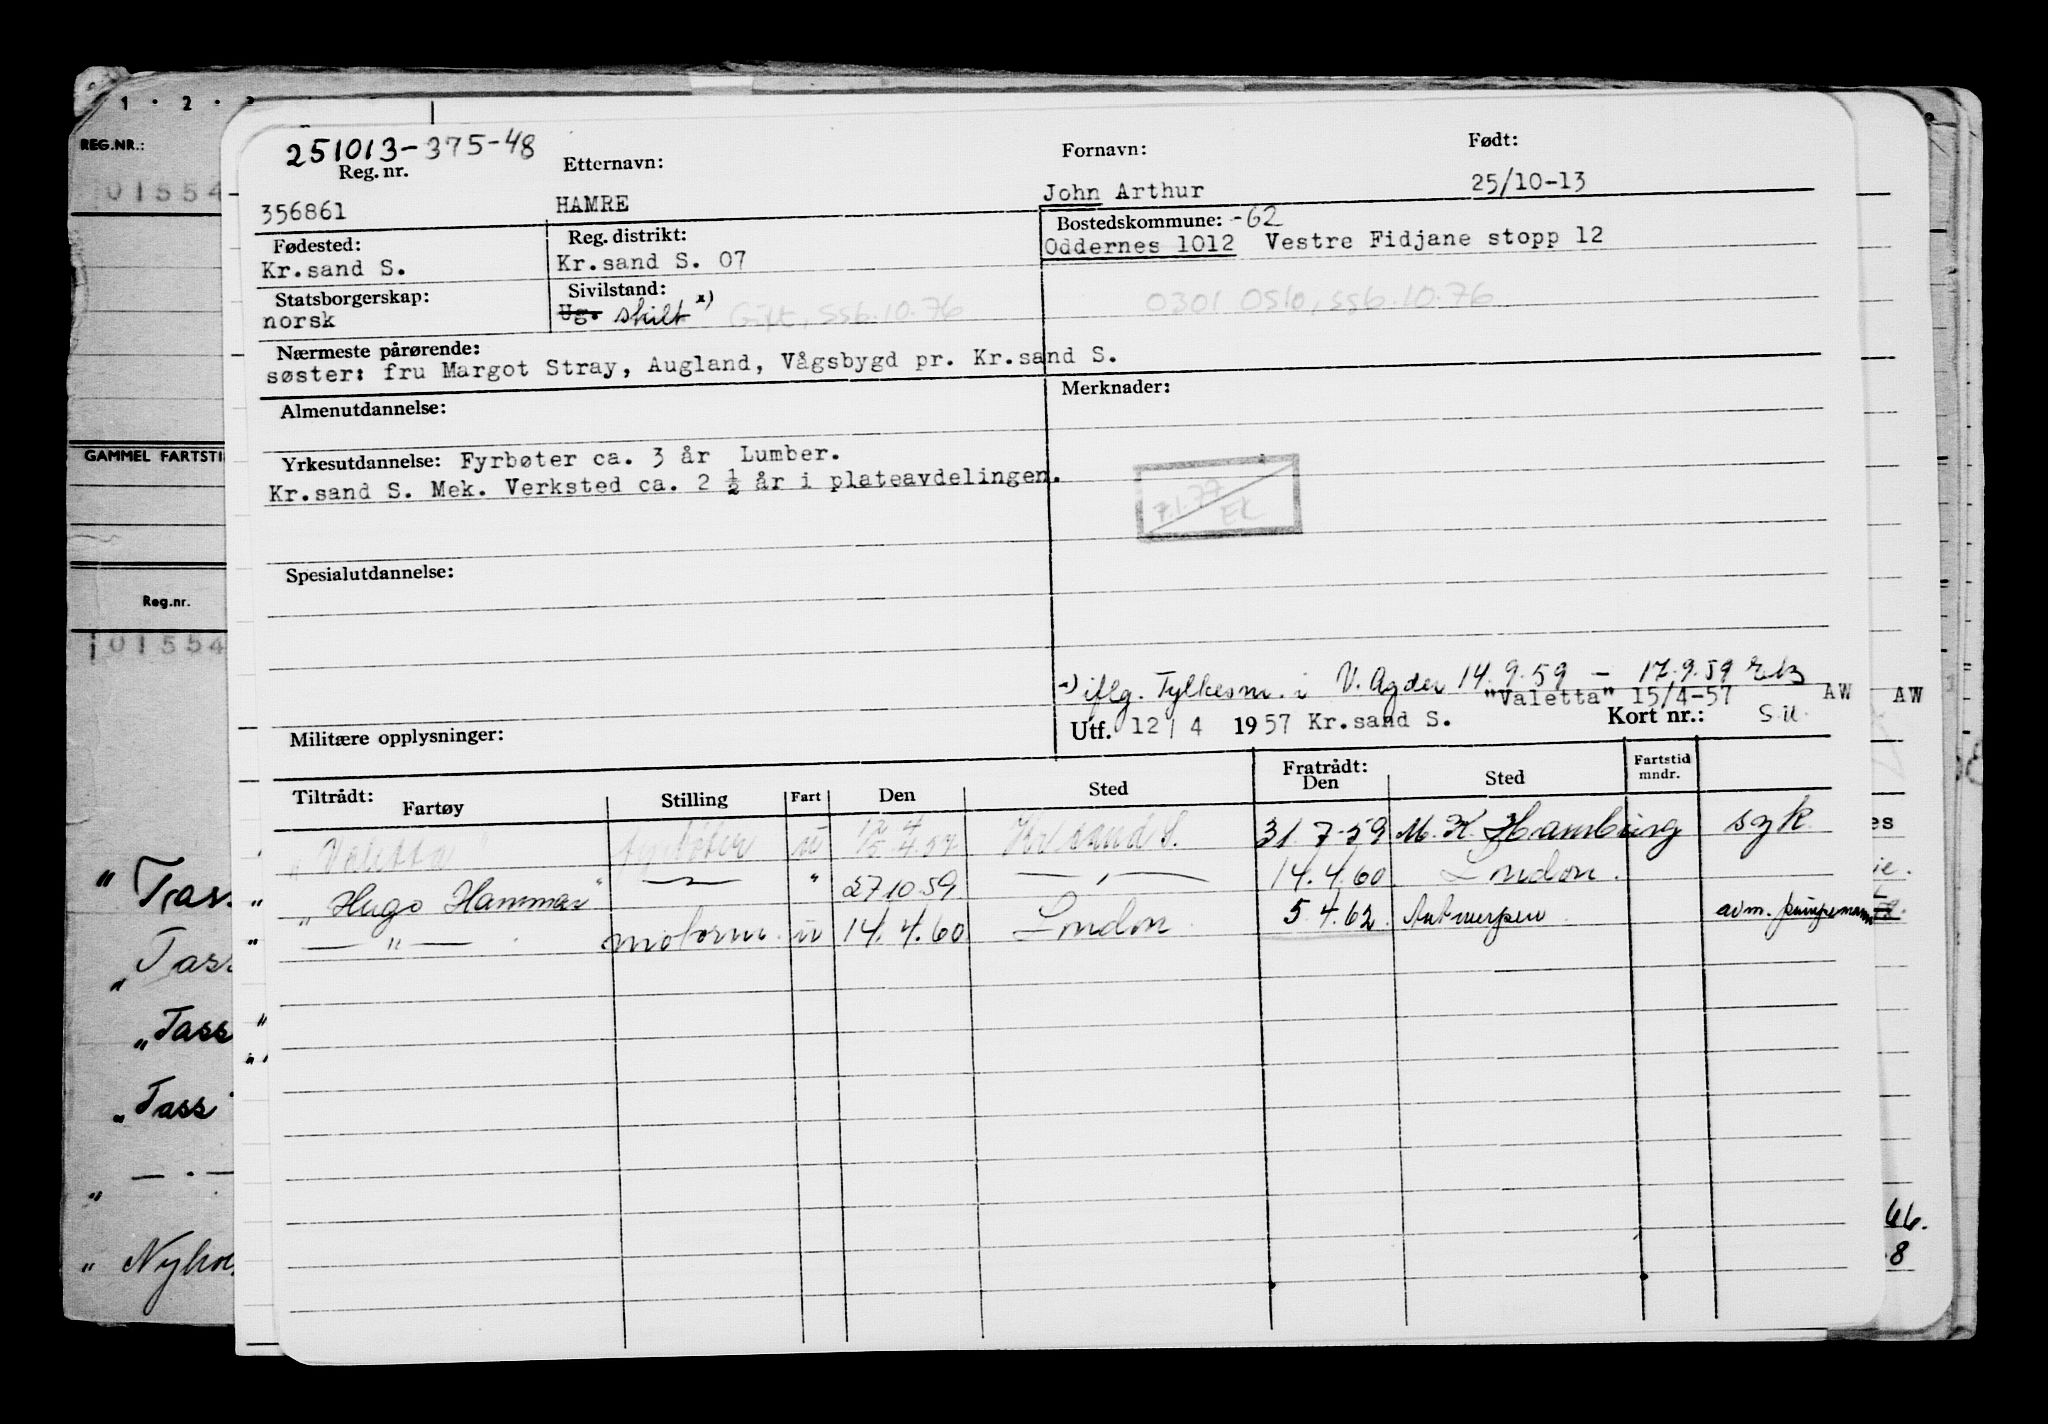 1 · 2 ·
REG.NR.:
01554
GAMMEL FARTSTI
Reg.nr.
01554
251013-375-48
Reg. nr.
Etternavn:
Fornavn:
Født:
356861
HAMRE
John Arthur
25/10-13
Fødested:
Reg. distrikt:
Bostedskommune: -62
Kr.sand S.
Kr.sand S. 07
Oddernes 1012 Vestre Fidjane stopp 12
Statsborgerskap:
Sivilstand:
norsk
Ug. skilt x)
Gift, ssb.10.76
0301 Oslo, ssb.10.76
Nærmeste pårørende:
søster: fru Margot Stray, Augland, Vågsbygd pr. Kr.sand S.
Almenutdannelse:
Merknader:
Yrkesutdannelse: Fyrbøter ca. 3 år Lumber.
Kr.sand S. Mek. Verksted ca. 2 ½ år i plateavdelingen.
7.1.77
EK
Spesialutdannelse:
x) iflg. Fylkesm. i V. Agder 14.9.59 – 17.9.59
"Valetta" 15/4-57 AW AW
Militære opplysninger:
Utf. 12/4 1957 Kr.sand S. Kort nr.:
Tiltrådt:
Fartøy
Stilling
Fart
Den
Sted
Fratrådt:
Den
Sted
Fartstid
mndr.
"Valetta" fyrbøter u 15.4.57 Kr.sand S. 31.7.59 M.K. Hamburg syk
"Hugo Hammar" — " 27.10.59 — " — 14.4.60 London
— " — motorm. u 14.4.60 London 5.4.62 Antwerpen avm. pumpemann
"Tass
"Tass
"Tass
— · —
"Nyho
66.
8